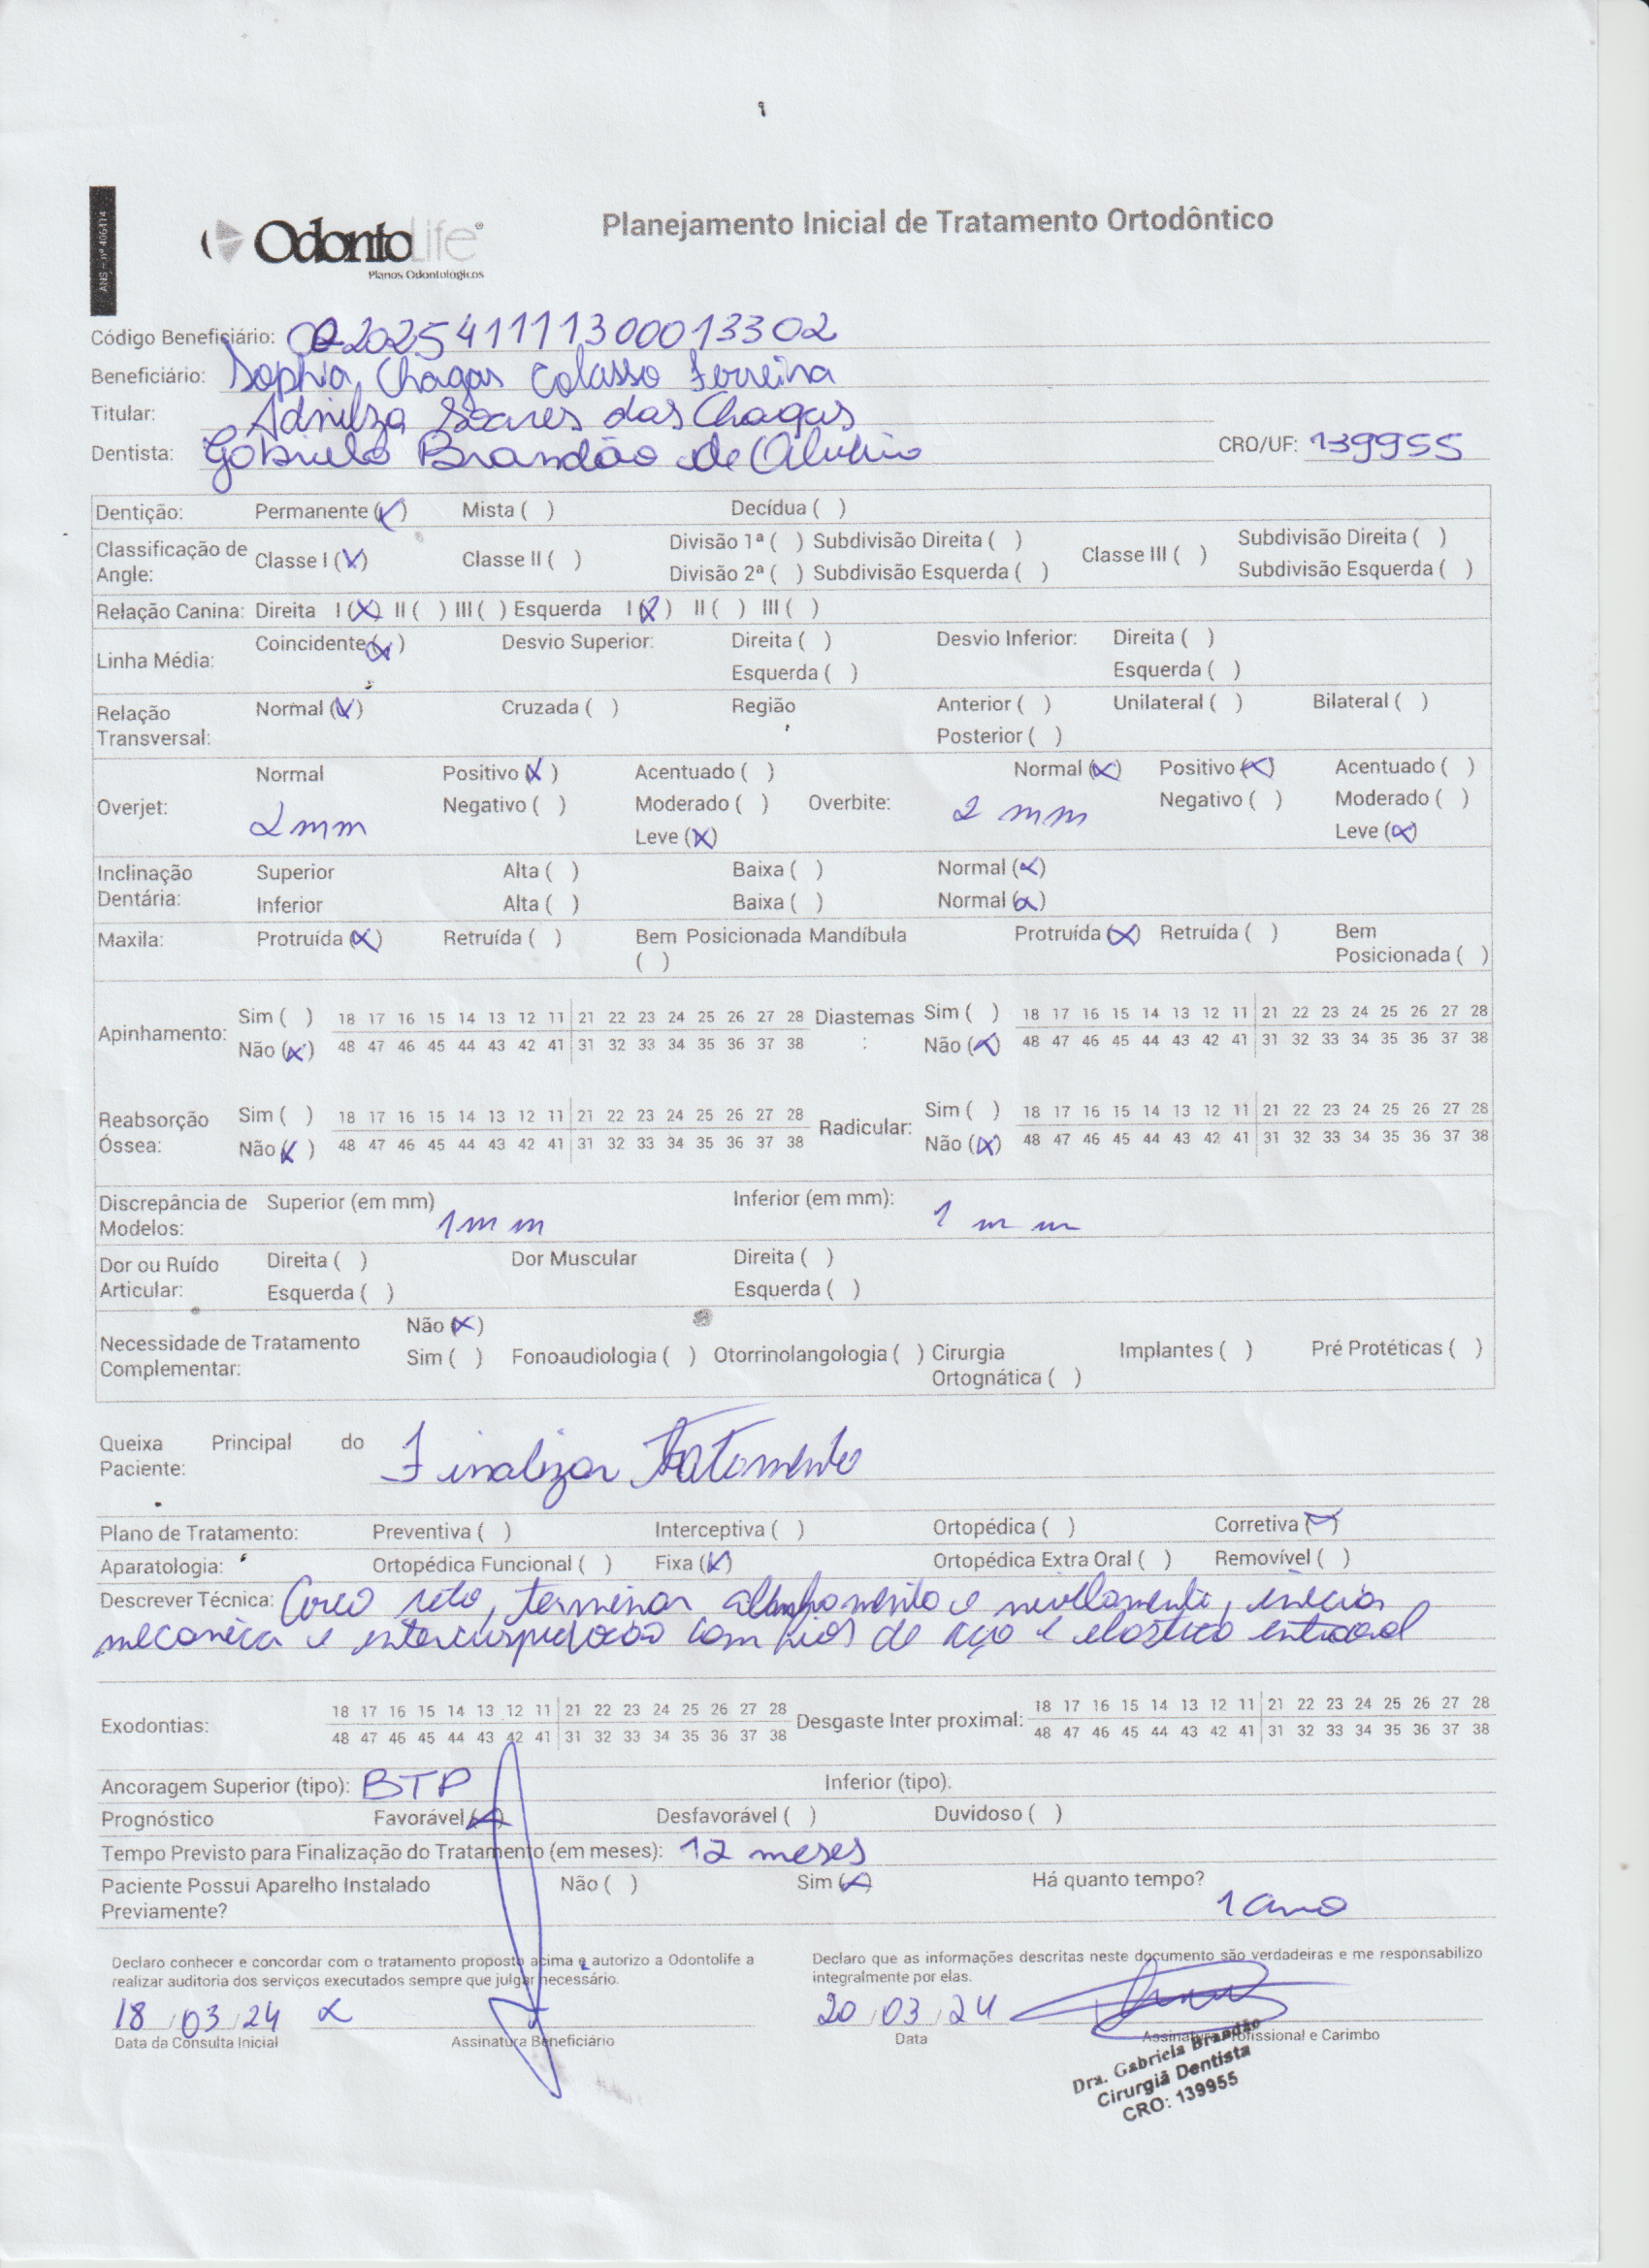 ANS - nº 406414
OdontoLife®
Planos Odontológicos
Planejamento Inicial de Tratamento Ortodôntico
Código Beneficiário: 00202541111300013302
Beneficiário: Sophia Chagas Colasso Ferreira
Titular: Adnilza Soares das Chagas
Dentista: Gabriela Brandão de CRO/UF: 139955
Dentição: Permanente (X) Mista ( ) Decídua ( )
Classificação de Angle: Classe I (X) Classe II ( ) Divisão 1ª ( ) Subdivisão Direita ( ) Classe III ( ) Subdivisão Direita ( )
Divisão 2ª ( ) Subdivisão Esquerda ( ) Subdivisão Esquerda ( )
Relação Canina: Direita I (X) II ( ) III ( ) Esquerda I (X) II ( ) III ( )
Linha Média: Coincidente (X) Desvio Superior: Direita ( ) Desvio Inferior: Direita ( )
Esquerda ( ) Esquerda ( )
Relação Transversal: Normal (X) Cruzada ( ) Região Anterior ( ) Unilateral ( ) Bilateral ( )
Posterior ( )
Normal Positivo (X) Acentuado ( ) Normal (X) Positivo (X) Acentuado ( )
Overjet: 2mm Negativo ( ) Moderado ( ) Overbite: 2 mm Negativo ( ) Moderado ( )
Leve (X) Leve (X)
Inclinação Dentária: Superior Alta ( ) Baixa ( ) Normal (X)
Inferior Alta ( ) Baixa ( ) Normal (X)
Maxila: Protruída (X) Retruída ( ) Bem Posicionada ( ) Mandíbula Protruída (X) Retruída ( ) Bem Posicionada ( )
Apinhamento: Sim ( ) 18 17 16 15 14 13 12 11 21 22 23 24 25 26 27 28 Diastemas : Sim ( ) 18 17 16 15 14 13 12 11 21 22 23 24 25 26 27 28
Não (X) 48 47 46 45 44 43 42 41 31 32 33 34 35 36 37 38 Não (X) 48 47 46 45 44 43 42 41 31 32 33 34 35 36 37 38
Reabsorção Óssea: Sim ( ) 18 17 16 15 14 13 12 11 21 22 23 24 25 26 27 28 Radicular: Sim ( ) 18 17 16 15 14 13 12 11 21 22 23 24 25 26 27 28
Não (X) 48 47 46 45 44 43 42 41 31 32 33 34 35 36 37 38 Não (X) 48 47 46 45 44 43 42 41 31 32 33 34 35 36 37 38
Discrepância de Modelos: Superior (em mm) 1mm Inferior (em mm): 1 mm
Dor ou Ruído Articular: Direita ( ) Dor Muscular Direita ( )
Esquerda ( ) Esquerda ( )
Necessidade de Tratamento Complementar: Não (X)
Sim ( ) Fonoaudiologia ( ) Otorrinolangologia ( ) Cirurgia Ortognática ( ) Implantes ( ) Pré Protéticas ( )
Queixa Principal do Paciente: Finalizar Tratamento
Plano de Tratamento: Preventiva ( ) Interceptiva ( ) Ortopédica ( ) Corretiva (X)
Aparatologia: Ortopédica Funcional ( ) Fixa (X) Ortopédica Extra Oral ( ) Removível ( )
Descrever Técnica: reto, terminar alinhamento e nivelamento, iniciar
mecanica e intercuspidacão com fios de aço e elastico intraoral
Exodontias: 18 17 16 15 14 13 12 11 21 22 23 24 25 26 27 28 Desgaste Inter proximal: 18 17 16 15 14 13 12 11 21 22 23 24 25 26 27 28
48 47 46 45 44 43 42 41 31 32 33 34 35 36 37 38 48 47 46 45 44 43 42 41 31 32 33 34 35 36 37 38
Ancoragem Superior (tipo): BTP Inferior (tipo):
Prognóstico Favorável (X) Desfavorável ( ) Duvidoso ( )
Tempo Previsto para Finalização do Tratamento (em meses): 12 meses
Paciente Possui Aparelho Instalado Previamente? Não ( ) Sim (X) Há quanto tempo? 1 ano
Declaro conhecer e concordar com o tratamento proposto acima e autorizo a Odontolife a
realizar auditoria dos serviços executados sempre que julgar necessário.
Declaro que as informações descritas neste documento são verdadeiras e me responsabilizo
integralmente por elas.
18/03/24 x 20/03/24
Data da Consulta Inicial Assinatura Beneficiário Data Assinatura Profissional e Carimbo
Dra. Gabriela Brandão
Cirurgiã Dentista
CRO: 139955